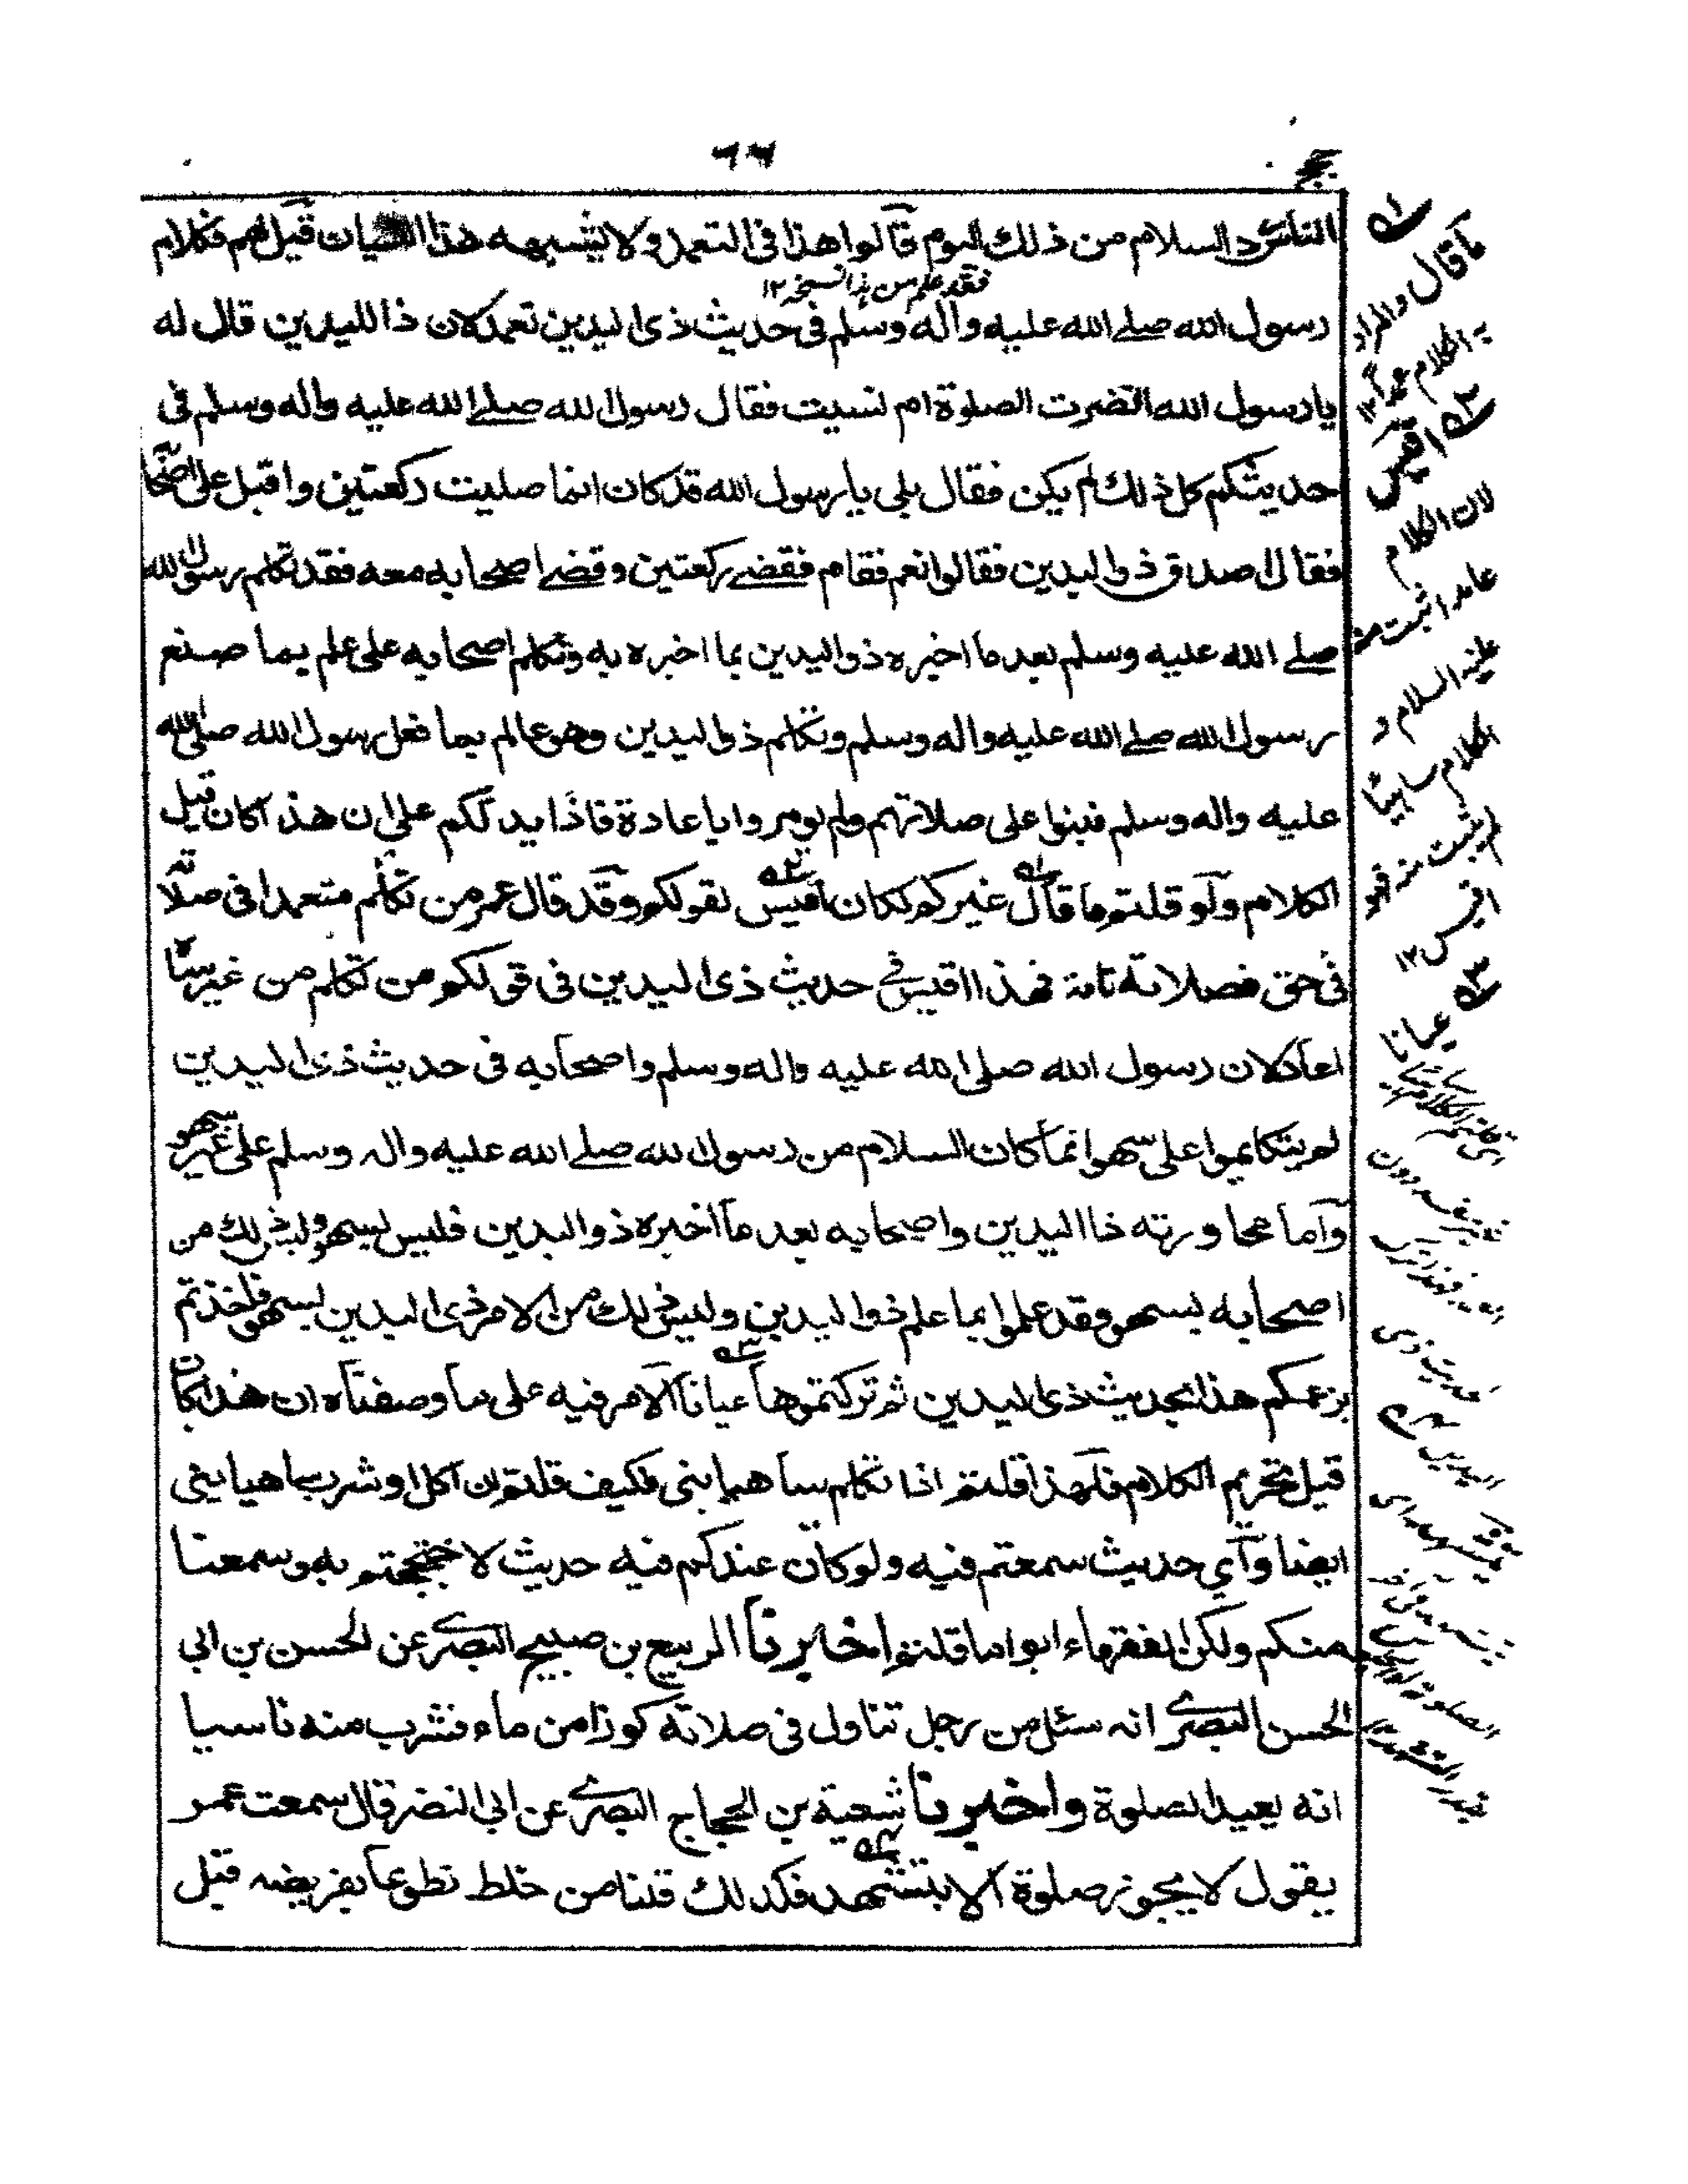 ٦٦
الناس رد السلام من ذلك اليوم قالوا هذا في التعمد ولا يشبهه هذا النسيان قيل لهم فكلام
فقد علم من هذا النسخة ١٢
رسول الله صلى الله عليه واله وسلم فى حديث ذى اليدين تعمد لان ذا اليدين قال له
يا رسول الله اقصرت الصلوة ام نسيت فقال رسول الله صلى الله عليه واله وسلم فى
حديثكم كل ذلك لم يكن فقال بلى يا رسول الله قد كان انما صليت ركعتين واقبل على اصحابه
فقال اصدق ذو اليدين فقالوا نعم فقام فقضى ركعتين وقضى اصحابه معه فقد تكلم رسول الله
صلى الله عليه وسلم بعد ما اخبره ذو اليدين بما اخبره به وتكلم اصحابه على علم بما صنع
رسول الله صلى الله عليه واله وسلم وتكلم ذو اليدين وهو عالم بما فعل رسول الله صلى الله
عليه واله وسلم فبنوا على صلاتهم ولم يومروا باعادة فاذا يدلكم على ان هذا كان قبل
الكلام ولو قلتم ما قال غيركم لكان اقيس لقولكم وقد قال عمر من تكلم متعمدا فى صلا
فى حق فصلاته تامة فهذا اقيس فى حديث ذى اليدين فى قولكم من تكلم من غير
اعاد لان رسول الله صلى الله عليه واله وسلم واصحابه فى حديث ذى اليدين
لم يتكلموا على سهو انما كان السلام من رسول الله صلى الله عليه واله وسلم على غير سهو
واما محاورته ذا اليدين واصحابه بعد ما اخبره ذو اليدين فليس بسهو وليس ذلك من
اصحابه بسهو وقد علموا بما علم ذو اليدين وليس ذلك من الامر ذى اليدين بسهو فاخذتم
بزعمكم هذا بحديث ذى اليدين ثم تركتموها عيانا الامر فيه على ما وصفناه ان هذا كان
قبل تحريم الكلام فلهذا قلتم اذا تكلم ساهيا بنى فكيف قلتم ان اكل او شرب ساهيا بنى
ايضا واي حديث سمعتم فيه ولو كان عندكم فيه حديث لاحتججتم به وسمعنا
منكم ولكن الفقهاء ابوا ما قلتم اخبرنا الربيع بن صبيح البصرى عن الحسن بن ابى
الحسن البصرى انه سئل من رجل تناول فى صلاته كوزا من ماء فشرب منه ناسيا
انه يعيد الصلوة واخبرنا شعبة بن الحجاج البصرى عن ابى النضر قال سمعت عمر
يقول لا يجوز صلوة الا بتشهد فكذلك قلنا من خلط تطوعا بفريضه قبل
ما قال والمراد
به الكلام عمدا ١٢
اقيس
لان الكلام
عامدا ثبت منه
عليه السلام و
الكلام ساهيا
لم يثبت منه فهو
اقيس ١٢
عيانا